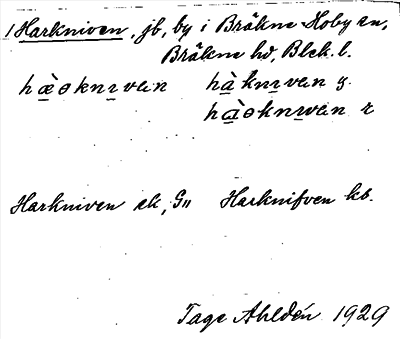 1 Harkniven, jb, by i Bräkne Hoby sn,
Bräkne hd, Blek. l.
hæ̀ɵknɪvɛn hàknɪvɛn y.
hàɵknɪvɛn r
Harkniven ek, G" Harknifven kb.
Tage Ahldén 1929